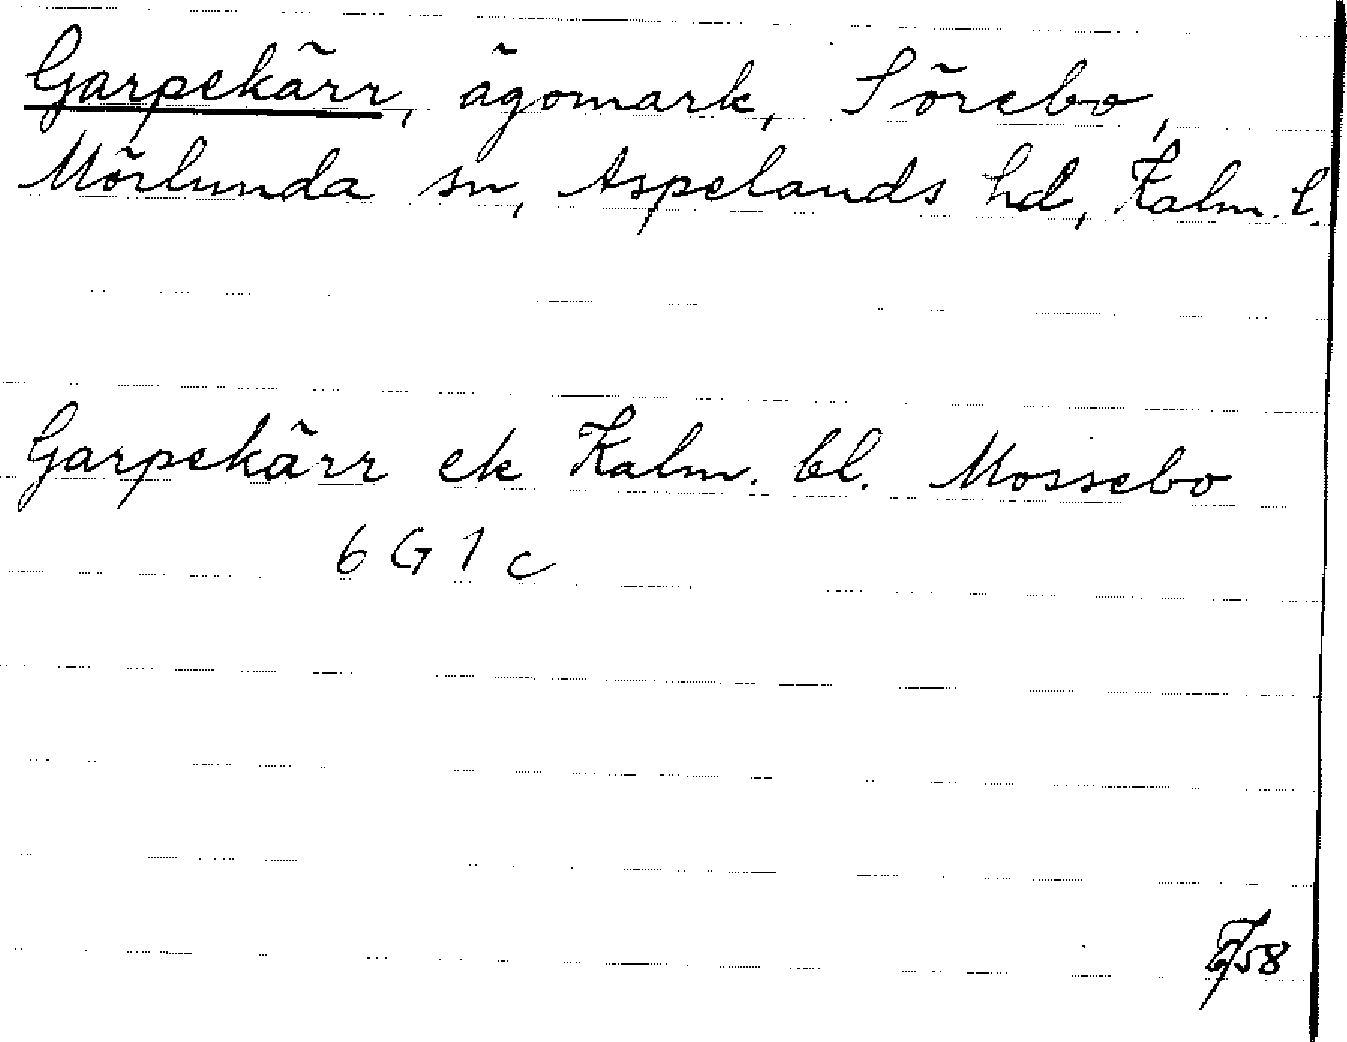 Garpekärr, ägomark, Sörebo,
Mörlunda sn, Aspelands hd, Kalm. l.
Garpekärr ek Kalm. bl. Mossebo
6 G 1 c